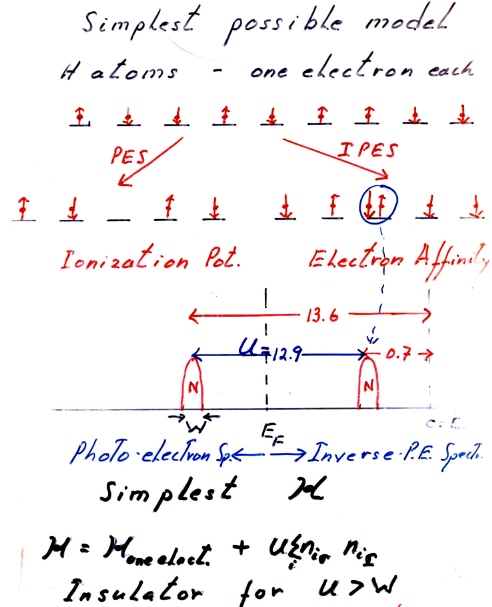 Simplest possible model
H atoms - one electron each
PES IPES
Ionization Pot. Electron Affinity
13.6
U = 12.9 0.7
N N
W
E_F
Photo-electron Sp. Inverse-P.E. Spectr.
Simplest H
H = H one elect. + U Σ_i n_iσ n_iσ̲
Insulator for U > W